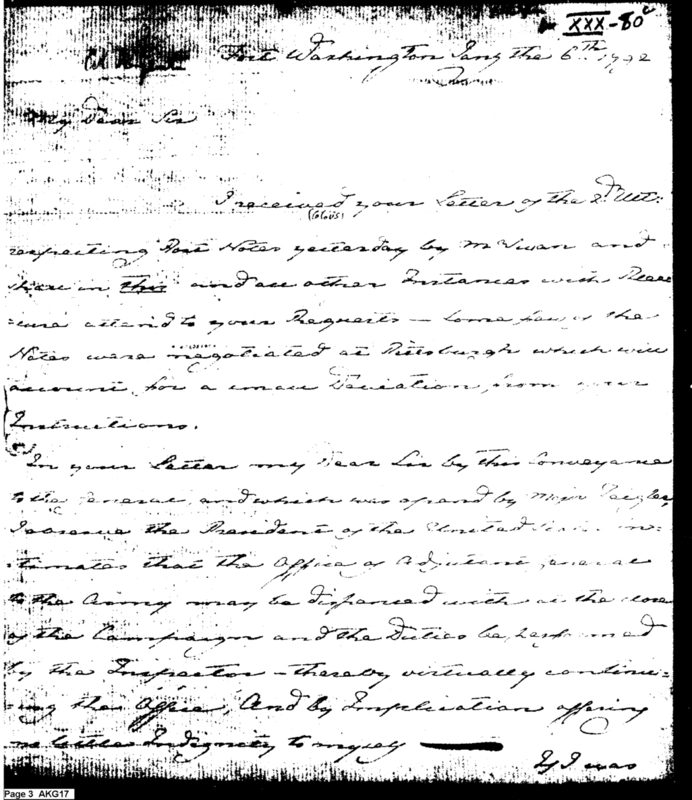 XXX-80
Fort Washington Jany the 6th 1792
My Dear Sir
I received your Letter of the 2d Ult:
respecting Post Notes yesterday by Mr Vivan and
shall in this and all other Instances with Pleas
=ure attend to your Requests — Some few of the
Notes were negotiated at Pittsburgh which will
account for a small Deviation from your
Instructions.
In your Letter my Dear Sir by this Conveyance
to the General, and which was opened by Major Zeigler,
I observe the President of the United States in=
=timates that the Office of Adjutant General
to the Army may be dispensed with at the close
of the Campaign and the Duties be performed
by the Inspector — thereby virtually continu=
=ing the Office, And by Implication offering
no little Indignity to myself —
If I was
Page 3 AKG17